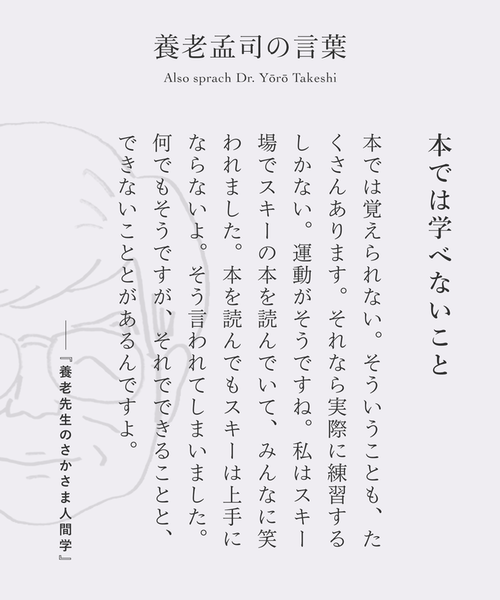 養老孟司の言葉
Also sprach Dr. Yōrō Takeshi
本では学べないこと
本では覚えられない。そういうことも、た
くさんあります。それなら実際に練習する
しかない。運動がそうですね。私はスキー
場でスキーの本を読んでいて、みんなに笑
われました。本を読んでもスキーは上手に
ならないよ。そう言われてしまいました。
何でもそうですが、それでできることと、
できないこととがあるんですよ。
──『養老先生のさかさま人間学』